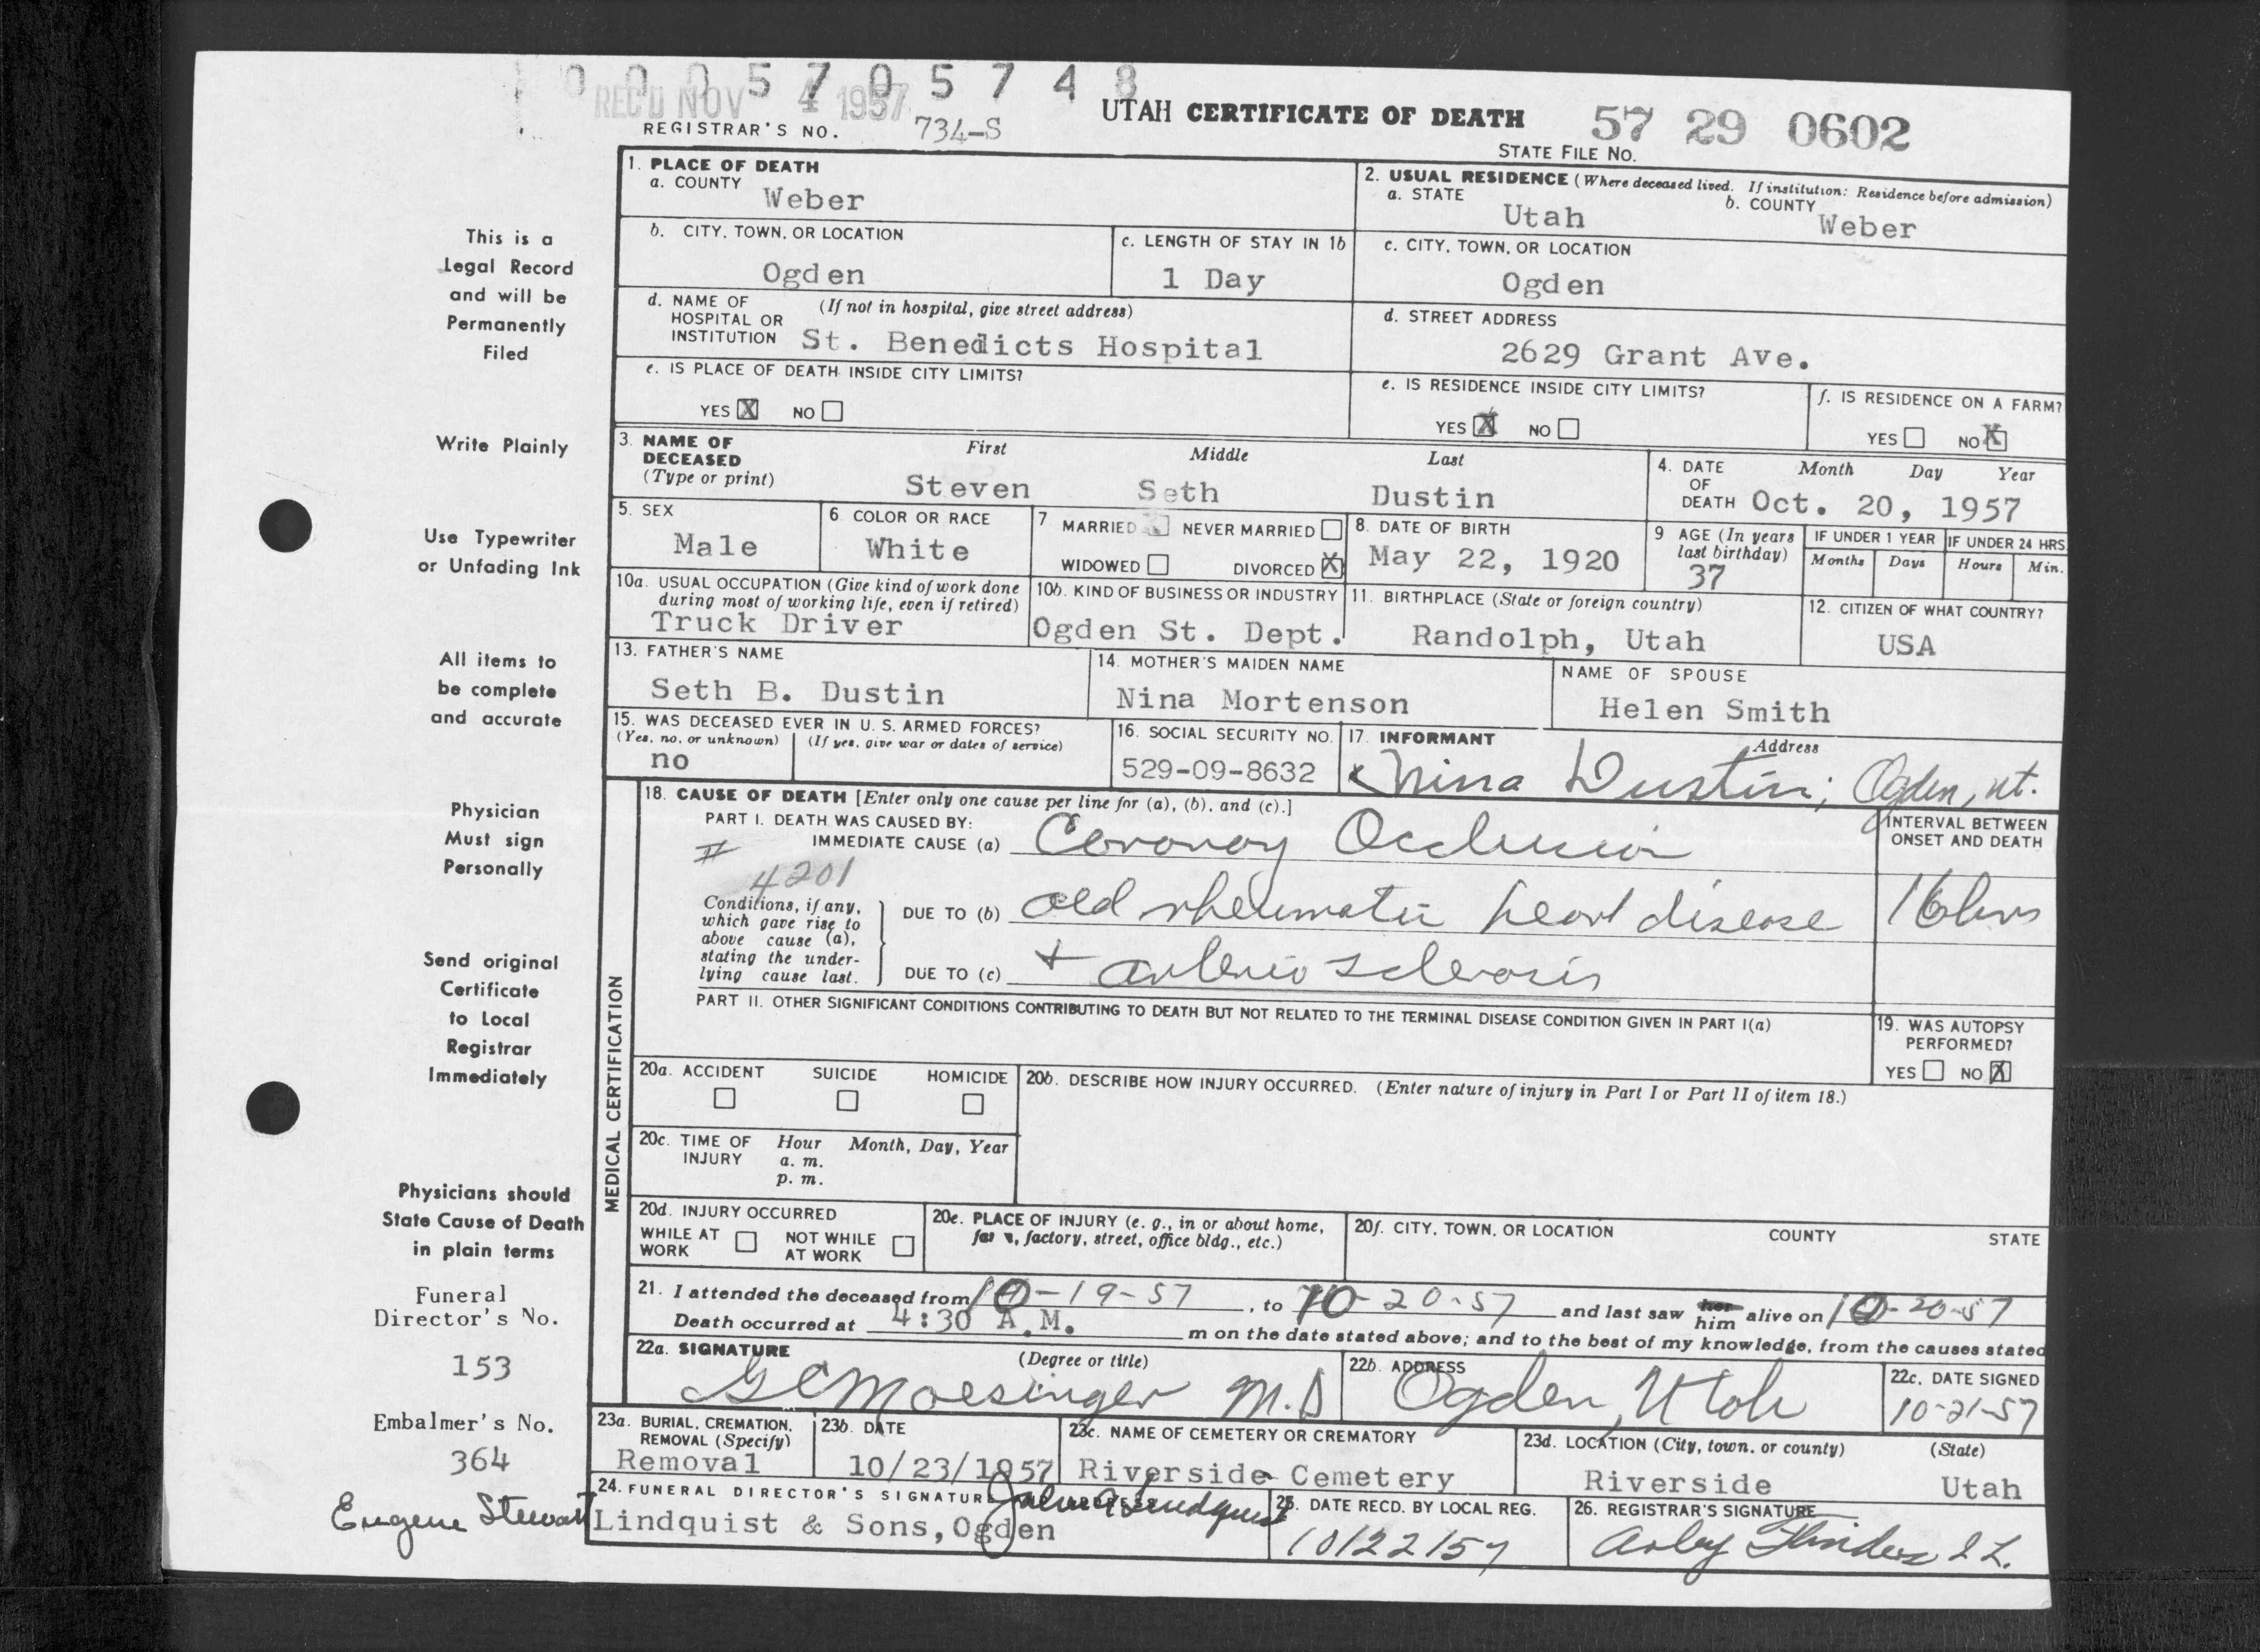 0005705748
REC'D NOV 4 1957
REGISTRAR'S NO. 734-S
UTAH CERTIFICATE OF DEATH
57 29 0602
STATE FILE NO.
This is a
Legal Record
and will be
Permanently
Filed
Write Plainly
Use Typewriter
or Unfading Ink
All items to
be complete
and accurate
Physician
Must sign
Personally
Send original
Certificate
to Local
Registrar
Immediately
Physicians should
State Cause of Death
in plain terms
Funeral
Director's No.
153
Embalmer's No.
364
Eugene Stewart
1. PLACE OF DEATH
a. COUNTY Weber
2. USUAL RESIDENCE (Where deceased lived. If institution: Residence before admission)
a. STATE Utah b. COUNTY Weber
b. CITY, TOWN, OR LOCATION
Ogden
c. LENGTH OF STAY IN 1b
1 Day
c. CITY, TOWN, OR LOCATION
Ogden
d. NAME OF (If not in hospital, give street address)
HOSPITAL OR
INSTITUTION St. Benedicts Hospital
d. STREET ADDRESS
2629 Grant Ave.
e. IS PLACE OF DEATH INSIDE CITY LIMITS?
YES X NO
e. IS RESIDENCE INSIDE CITY LIMITS?
YES X NO
f. IS RESIDENCE ON A FARM?
YES NO X
3. NAME OF First Middle Last
DECEASED
(Type or print) Steven Seth Dustin
4. DATE Month Day Year
OF
DEATH Oct. 20, 1957
5. SEX
Male
6. COLOR OR RACE
White
7 MARRIED NEVER MARRIED
WIDOWED DIVORCED X
8. DATE OF BIRTH
May 22, 1920
9 AGE (In years
last birthday)
37
IF UNDER 1 YEAR
Months Days
IF UNDER 24 HRS
Hours Min.
10a. USUAL OCCUPATION (Give kind of work done
during most of working life, even if retired)
Truck Driver
10b. KIND OF BUSINESS OR INDUSTRY
Ogden St. Dept.
11. BIRTHPLACE (State or foreign country)
Randolph, Utah
12. CITIZEN OF WHAT COUNTRY?
USA
13. FATHER'S NAME
Seth B. Dustin
14. MOTHER'S MAIDEN NAME
Nina Mortenson
NAME OF SPOUSE
Helen Smith
15. WAS DECEASED EVER IN U. S. ARMED FORCES?
(Yes, no, or unknown) (If yes, give war or dates of service)
no
16. SOCIAL SECURITY NO.
529-09-8632
17. INFORMANT Address
x Nina Dustin; Ogden, Ut.
MEDICAL CERTIFICATION
18. CAUSE OF DEATH [Enter only one cause per line for (a), (b), and (c).]
PART I. DEATH WAS CAUSED BY:
IMMEDIATE CAUSE (a) Coronary Occlusion
II
4201
INTERVAL BETWEEN
ONSET AND DEATH
Conditions, if any,
which gave rise to
above cause (a),
stating the under-
lying cause last.
DUE TO (b) old rheumatic heart disease
16 hrs
DUE TO (c) + arterio sclerosis
PART II. OTHER SIGNIFICANT CONDITIONS CONTRIBUTING TO DEATH BUT NOT RELATED TO THE TERMINAL DISEASE CONDITION GIVEN IN PART I(a)
19. WAS AUTOPSY
PERFORMED?
YES NO X
20a. ACCIDENT SUICIDE HOMICIDE
20b. DESCRIBE HOW INJURY OCCURRED. (Enter nature of injury in Part I or Part II of item 18.)
20c. TIME OF Hour Month, Day, Year
INJURY a. m.
p. m.
20d. INJURY OCCURRED
WHILE AT NOT WHILE
WORK AT WORK
20e. PLACE OF INJURY (e. g., in or about home,
farm, factory, street, office bldg., etc.)
20f. CITY, TOWN, OR LOCATION COUNTY STATE
21. I attended the deceased from 10-19-57, to 10-20-57 and last saw her him alive on 10-20-57
Death occurred at 4:30 A.M. m on the date stated above; and to the best of my knowledge, from the causes stated
22a. SIGNATURE (Degree or title)
G C Moesinger M.D
22b. ADDRESS
Ogden, Utah
22c. DATE SIGNED
10-21-57
23a. BURIAL, CREMATION,
REMOVAL (Specify)
Removal
23b. DATE
10/23/1957
23c. NAME OF CEMETERY OR CREMATORY
Riverside Cemetery
23d. LOCATION (City, town, or county) (State)
Riverside Utah
24. FUNERAL DIRECTOR'S SIGNATURE ADDRESS
Lindquist & Sons, Ogden
25. DATE RECD. BY LOCAL REG.
10/22/57
26. REGISTRAR'S SIGNATURE